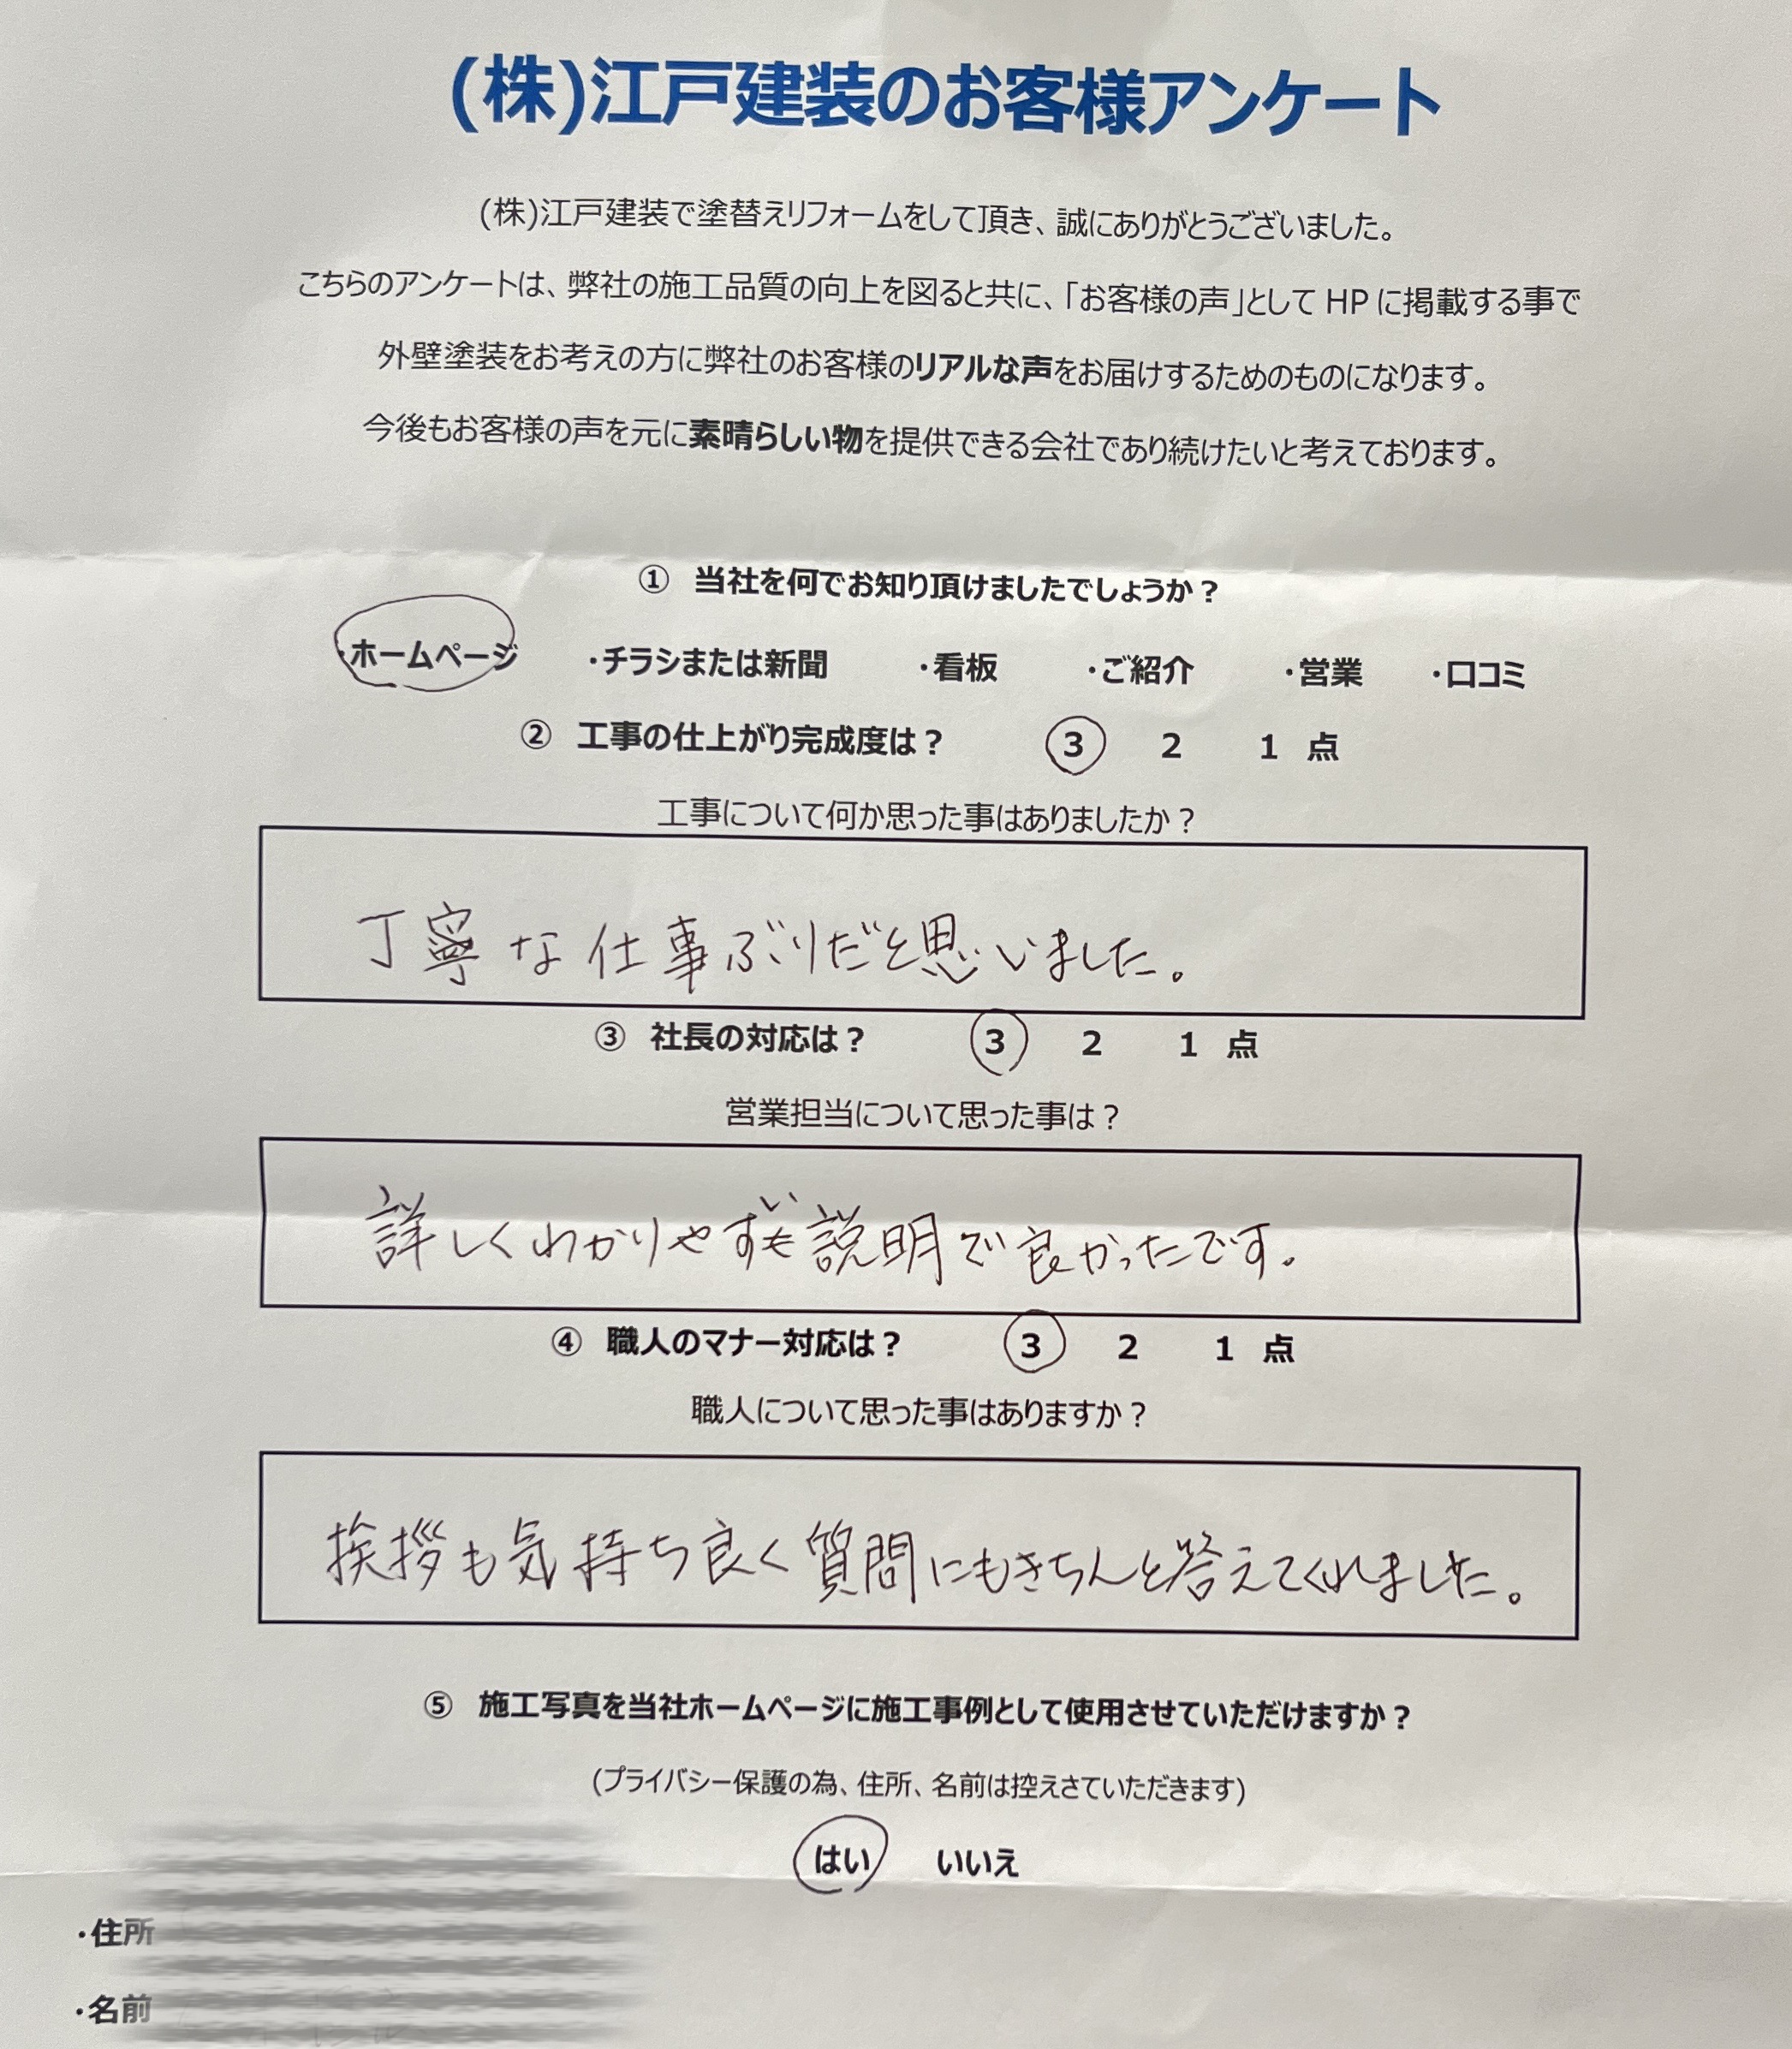 (株)江戸建装のお客様アンケート
(株)江戸建装で塗替えリフォームをして頂き、誠にありがとうございました。
こちらのアンケートは、弊社の施工品質の向上を図ると共に、「お客様の声」として HP に掲載する事で
外壁塗装をお考えの方に弊社のお客様のリアルな声をお届けするためのものになります。
今後もお客様の声を元に素晴らしい物を提供できる会社であり続けたいと考えております。
① 当社を何でお知り頂けましたでしょうか？
・ホームページ ・チラシまたは新聞 ・看板 ・ご紹介 ・営業 ・口コミ
② 工事の仕上がり完成度は？ 3 2 1 点
工事について何か思った事はありましたか？
丁寧な仕事ぶりだと思いました。
③ 社長の対応は？ 3 2 1 点
営業担当について思った事は？
詳しくわかりやすい説明で良かったです。
④ 職人のマナー対応は？ 3 2 1 点
職人について思った事はありますか？
挨拶も気持ち良く質問にもきちんと答えてくれました。
⑤ 施工写真を当社ホームページに施工事例として使用させていただけますか？
(プライバシー保護の為、住所、名前は控えさていただきます)
はい いいえ
・住所
・名前